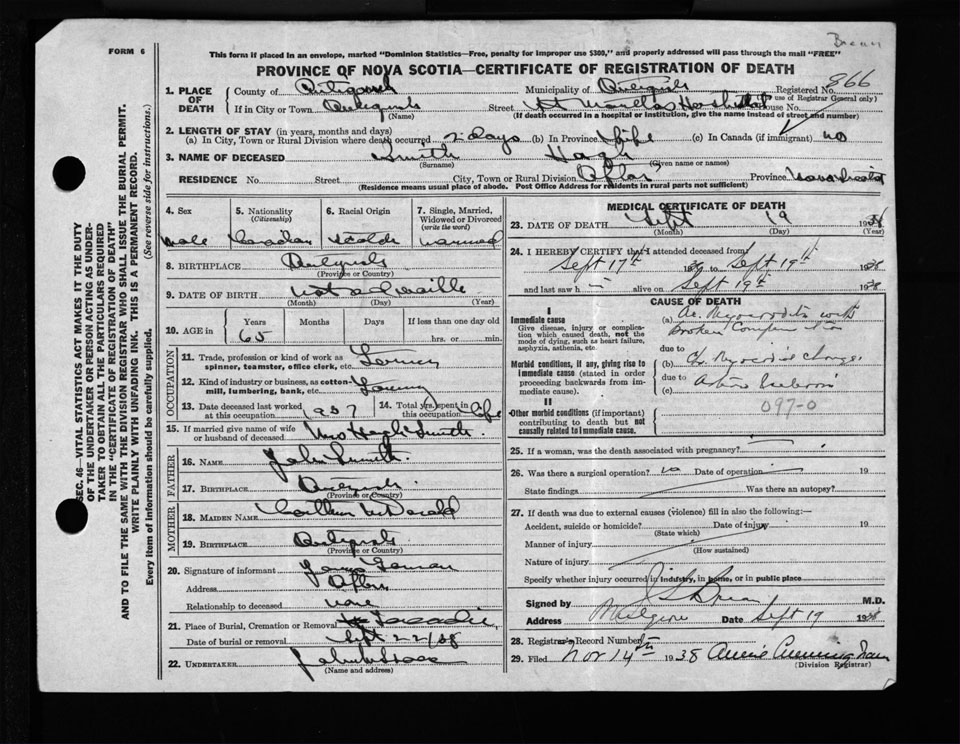 FORM 6
This form if placed in an envelope, marked "Dominion Statistics—Free, penalty for improper use $300," and properly addressed will pass through the mail "FREE"
PROVINCE OF NOVA SCOTIA—CERTIFICATE OF REGISTRATION OF DEATH
866
1. PLACE OF DEATH County of Antigonish Municipality of Antigonish Registered No.
(For use of Registrar General only)
If in City or Town Antigonish Street St Marthas Hospital House No.
(Name) (If death occurred in a hospital or institution, give the name instead of street and number)
2. LENGTH OF STAY (in years, months and days)
(a) In City, Town or Rural Division where death occurred 2 days (b) In Province Life (c) In Canada (if immigrant) no
3. NAME OF DECEASED Smith Hugh
(Surname) (Given name or names)
RESIDENCE No. Street City, Town or Rural Division Afton Province Nova Scotia
(Residence means usual place of abode. Post Office Address for residents in rural parts not sufficient)
SEC. 46—VITAL STATISTICS ACT MAKES IT THE DUTY
OF THE UNDERTAKER OR PERSON ACTING AS UNDER-
TAKER TO OBTAIN ALL THE PARTICULARS REQUIRED
IN THE "CERTIFICATE OF REGISTRATION OF DEATH"
AND TO FILE THE SAME WITH THE DIVISION REGISTRAR WHO SHALL ISSUE THE BURIAL PERMIT.
WRITE PLAINLY WITH UNFADING INK. THIS IS A PERMANENT RECORD.
Every item of information should be carefully supplied. (See reverse side for instructions.)
4. Sex
Male
5. Nationality
(Citizenship)
Canadian
6. Racial Origin
Scotch
7. Single, Married, Widowed or Divorced
(write the word)
Married
8. BIRTHPLACE Antigonish
(Province or Country)
9. DATE OF BIRTH not available
(Month) (Day) (Year)
10. AGE in Years Months Days If less than one day old
65 hrs. or min.
OCCUPATION
11. Trade, profession or kind of work as
spinner, teamster, office clerk, etc. Farmer
12. Kind of industry or business, as cotton-
mill, lumbering, bank, etc. Farming
13. Date deceased last worked
at this occupation 1937
14. Total yrs. spent in
this occupation Life
15. If married give name of wife
or husband of deceased Mrs Hugh Smith
FATHER
16. NAME John Smith
17. BIRTHPLACE Antigonish
(Province or Country)
MOTHER
18. MAIDEN NAME McDonald
19. BIRTHPLACE Antigonish
(Province or Country)
20. Signature of informant
Address Afton
Relationship to deceased none
21. Place of Burial, Cremation or Removal Tracadie
Date of burial or removal Sept 22/38
22. UNDERTAKER
(Name and address)
MEDICAL CERTIFICATE OF DEATH
23. DATE OF DEATH Sept 19 1938
(Month) (Day) (Year)
24. I HEREBY CERTIFY that I attended deceased from
Sept 17th 1938 to Sept 19th 1938
and last saw h im alive on Sept 19th 1938
CAUSE OF DEATH
I
Immediate cause
Give disease, injury or complication which caused death, not the mode of dying, such as heart failure, asphyxia, asthenia, etc.
(a) Ac. Myocarditis with
broken Compensation
due to
Morbid conditions, if any, giving rise to immediate cause (stated in order proceeding backwards from immediate cause).
(b) Ch. Myocardial changes
due to
(c)
II
Other morbid conditions (if important) contributing to death but not causally related to immediate cause.
097-0
25. If a woman, was the death associated with pregnancy?
26. Was there a surgical operation? no Date of operation 19
State findings Was there an autopsy?
27. If death was due to external causes (violence) fill in also the following:—
Accident, suicide or homicide? Date of injury 19
(State which)
Manner of injury
(How sustained)
Nature of injury
Specify whether injury occurred in industry, in home, or in public place
Signed by M.D.
Address Date Sept 19 1938
28. Registrar's Record Number
29. Filed Nov 14th 1938 Annie Cunningham
(Division Registrar)